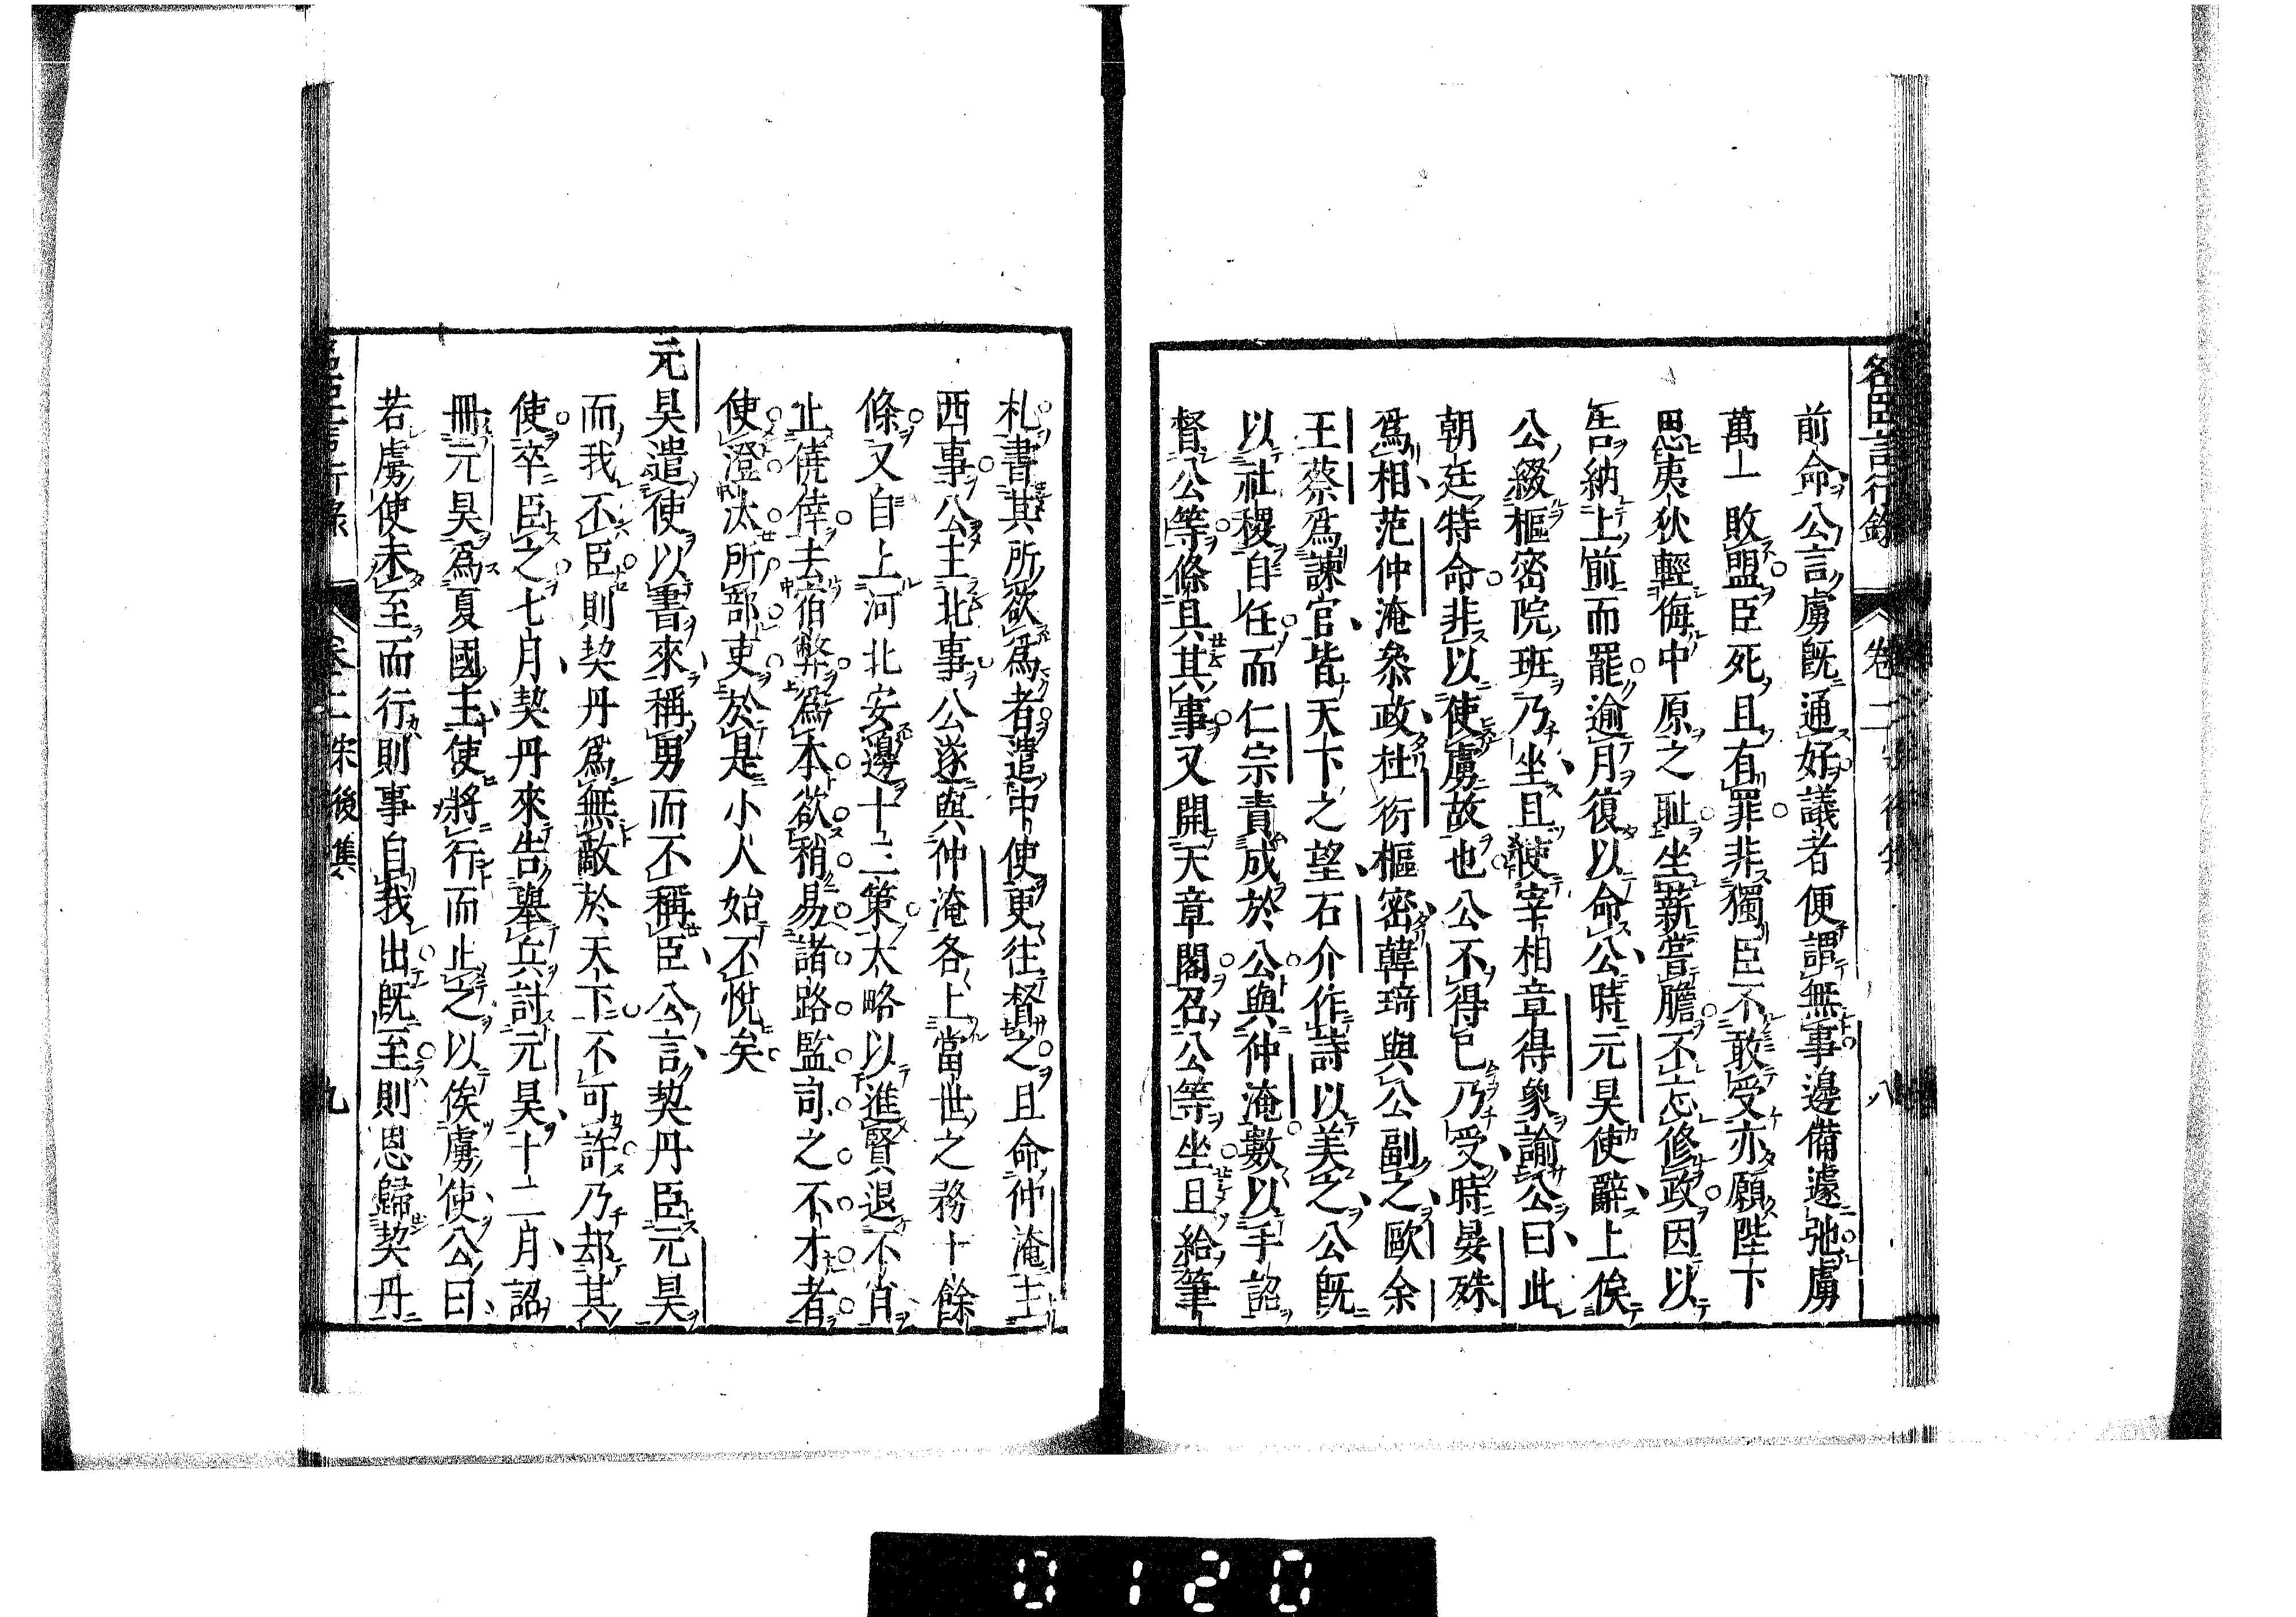 名臣言行錄 卷二 八
前命公言虜既通好議者便謂無事邊備遂弛虜
萬一敗盟臣死且有罪非獨臣不敢受亦願陛下
思夷狄輕侮中原之耻坐薪嘗膽不忘修政因以
告納上前而罷逾月復以命公時元昊使辭上俟
公綴樞密院班乃坐且使宰相章得象諭公曰此
朝廷特命非以使虜故也公不得已乃受時晏殊
爲相范仲淹叅政杜衍樞密韓琦與公副之歐余
王蔡爲諫官皆天下之望石介作詩以美之公既
以社稷自任而仁宗責成於公與仲淹數以手詔
督公等條具其事又開天章閣召公等坐且給筆
札書其所欲爲者遣中使更往督之且命仲淹主
西事公主北事公遂與仲淹各上當世之務十餘
條又自上河北安邊十三策大略以進賢退不肖
止僥倖去宿弊爲本欲稍易諸路監司之不才者
使澄汰所部吏於是小人始不悅矣
元昊遣使以書來稱男而不稱臣公言契丹臣元昊
而我不臣則契丹爲無敵於天下不可許乃却其
使卒臣之七月契丹來告舉兵討元昊十二月詔
冊元昊爲夏國主使將行而止之以俟虜使公曰
若虜使未至而行則事自我出既至則恩歸契丹
卷二 宋後集 九
0120